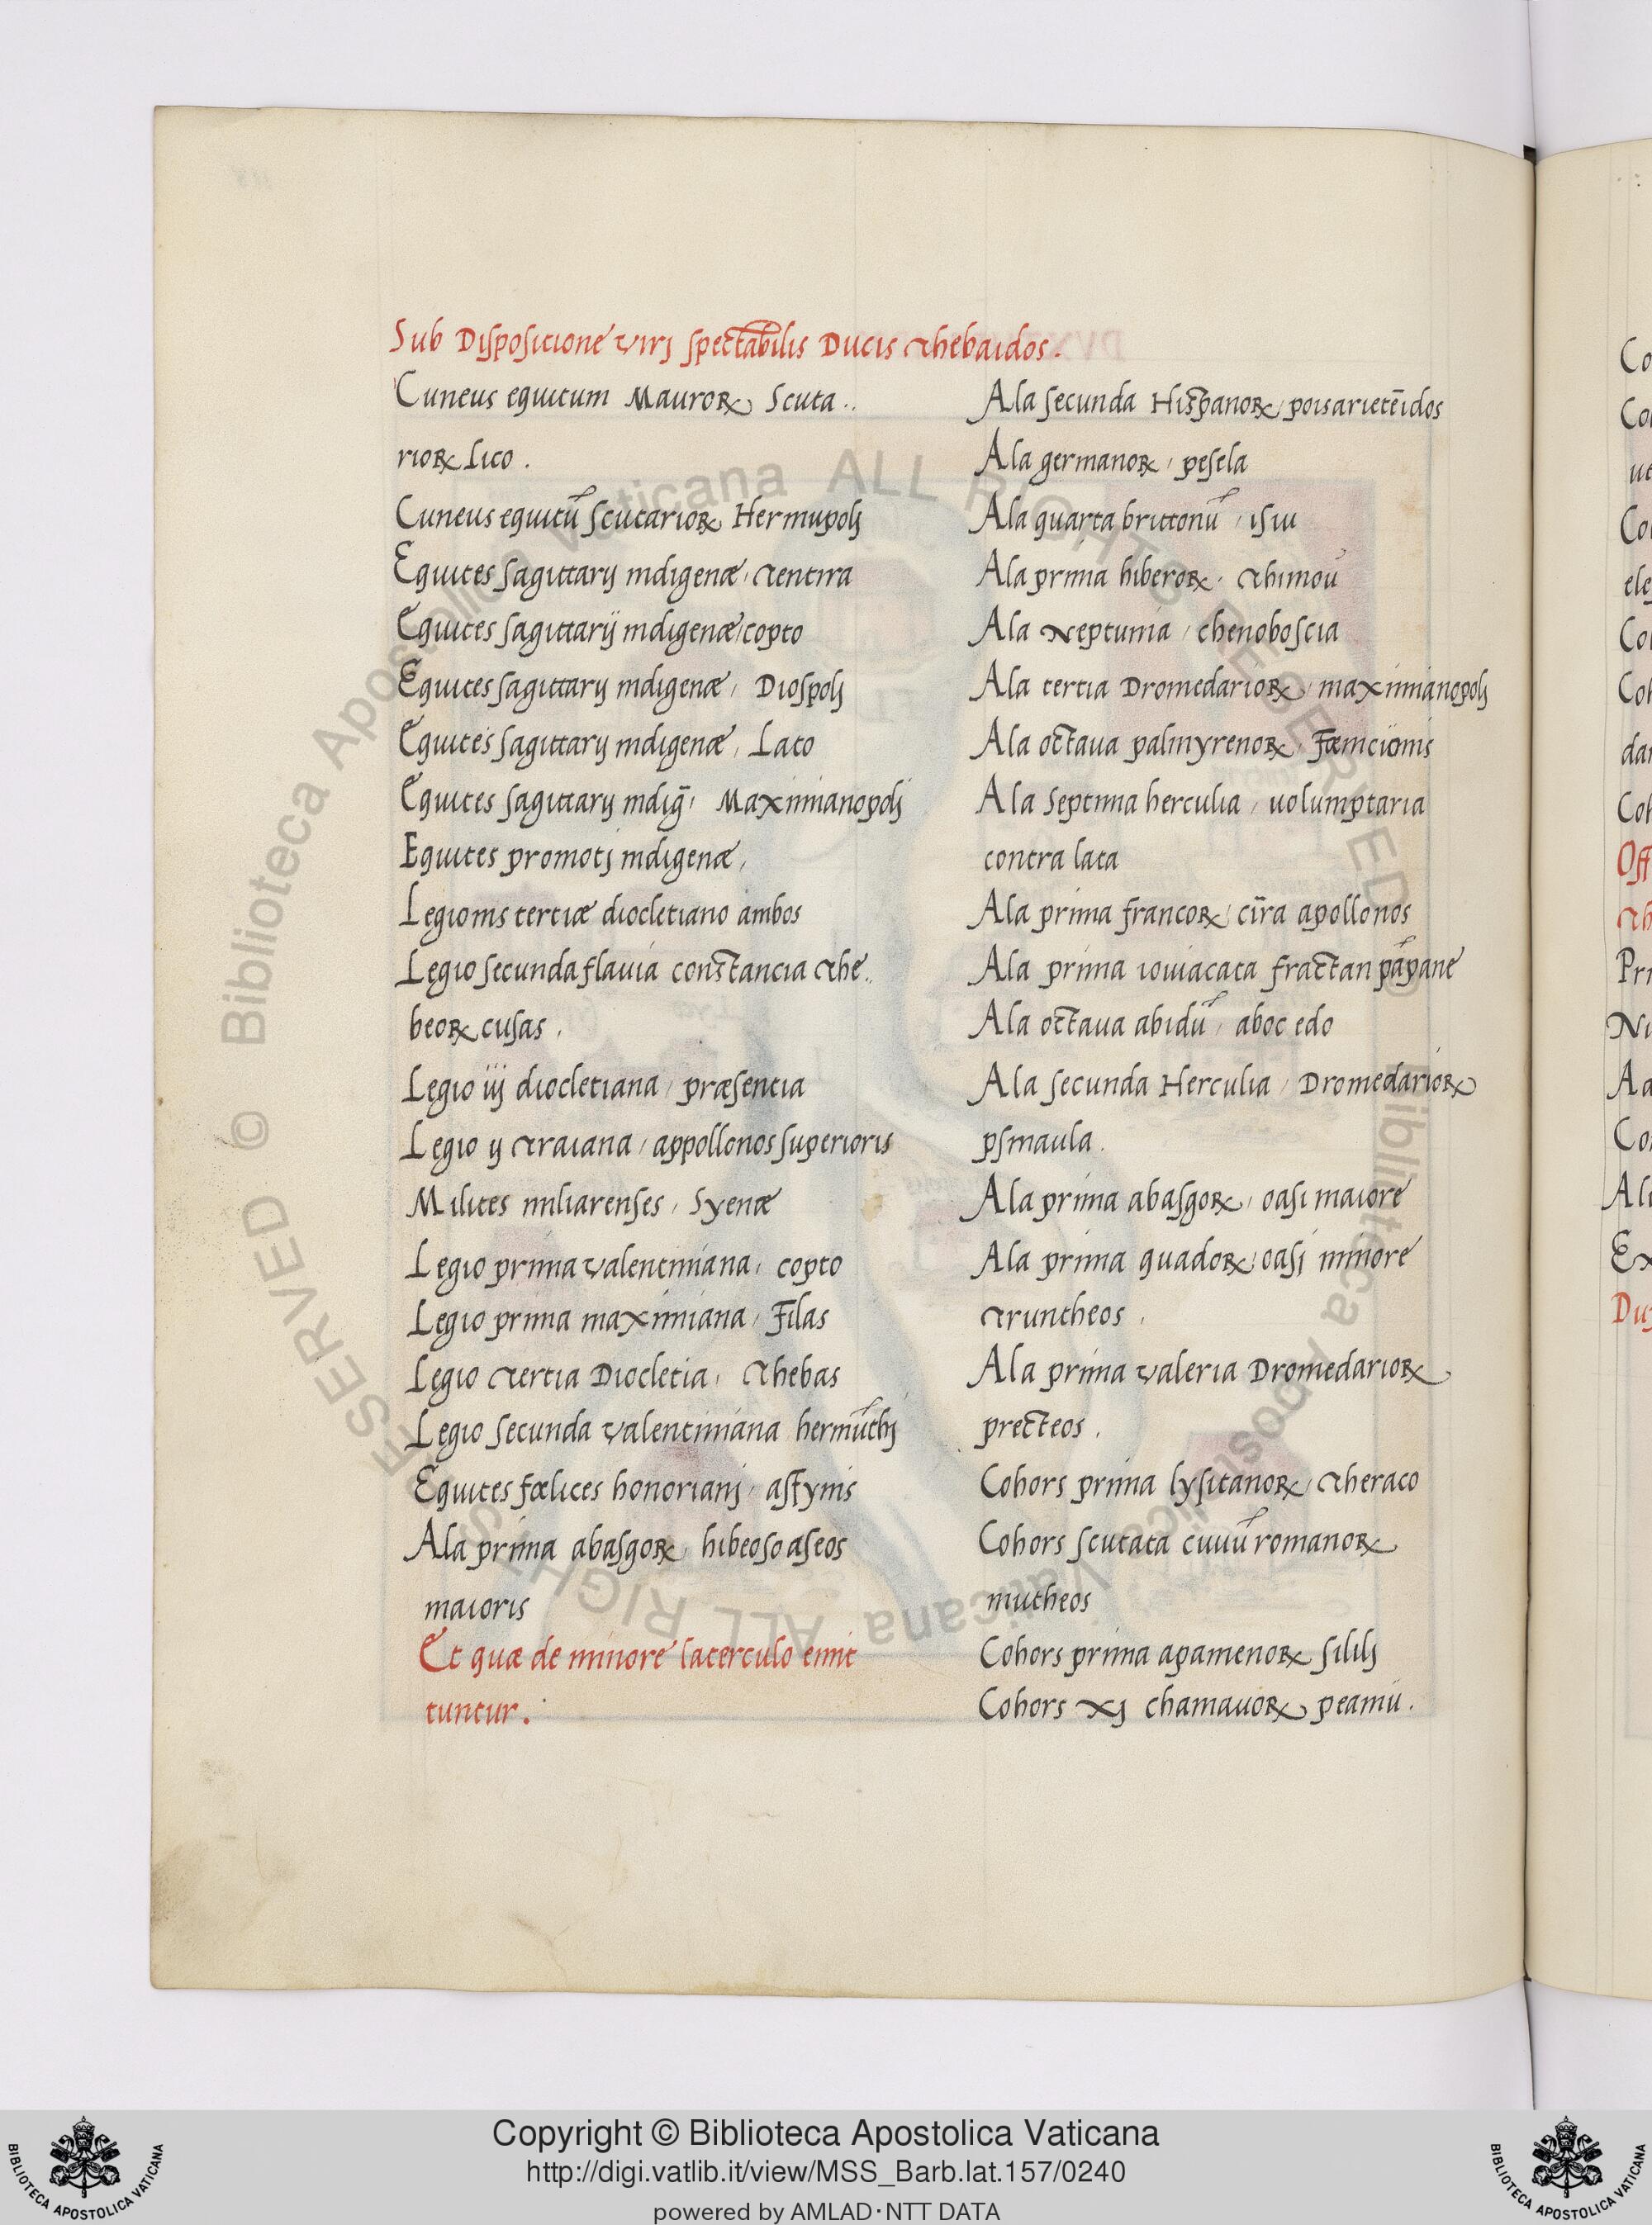 Sub Disposicione virj spectabilis Ducis Thebaidos.
Cuneus equitum Mauroꝝ Scuta..
rioꝝ Lico.
Cuneus equitũ scutarioꝝ Hermupolj
Equites sagittarij indigenæ, Tentira
Equites sagittarij indigenæ, copto
Equites sagittarij indigenæ, Diospolj
Equites sagittarij indigenæ, Lato
Equites sagittarij indig̃, Maximianopolj
Equites promotj indigenæ,
Legionis tertiæ diocletiano ambos
Legio secunda flauia constancia The..
beoꝝ cusas.
Legio iij diocletiana, præsentia
Legio ij Traiana, appollonos superioris
Milites miliarenses, Syenæ
Legio prima valentiniana, copto
Legio prima maximiana, Filas
Legio Tertia Diocletia, Thebas
Legio secunda valentiniana hermũthj
Equites fœlices honorianj, asfynis
Ala prima abasgoꝝ, hibeosoaseos
maioris
Et quæ de minore laterculo emit
tuntur.
Ala secunda Hispanoꝝ, poisarietẽidos
Ala germanoꝝ, pesela
Ala quarta brittonũ, isiu
Ala prima hiberoꝝ, Thimou
Ala Neptunia, chenoboscia
Ala tertia Dromedarioꝝ, maximianopolj
Ala octaua palmyrenoꝝ, Fœnicionis
Ala septima herculia, uolumptaria
contra lata
Ala prima francoꝝ, cura apollonos
Ala prima iouiacata fractan pãpane
Ala octaua abidũ, aboc edo
Ala secunda Herculia, Dromedarioꝝ
psinaula.
Ala prima abasgoꝝ, oasi maiore
Ala prima quadoꝝ, oasj minore
Truntheos.
Ala prima valeria Dromedarioꝝ
precteos.
Cohors prima lysitanoꝝ, Theraco
Cohors scutata ciuiũ romanoꝝ
mutheos
Cohors prima apamenoꝝ sililj
Cohors xj chamauoꝝ peamu.
Copyright © Biblioteca Apostolica Vaticana
http://digi.vatlib.it/view/MSS_Barb.lat.157/0240
powered by AMLAD·NTT DATA